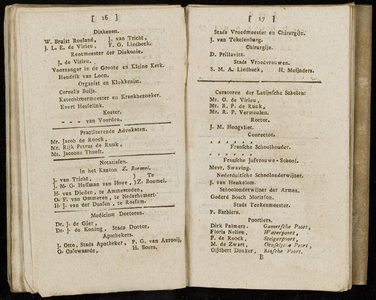 [ 16 ]
Diakenen.
W. Bruist Roeland, J. van Tricht,
J. L. E. de Virieu, F. G. Liedbeek.
Rentmeester der Diakonie.
J. de Virieu.
Voorzanger in de Groote en Kleine Kerk.
Hendrik van Loon.
Organist en Klokkenist.
Cornelis Buijs.
Katechizeermeester en Krankbezoeker.
Evert Hasselink.
Koster.
- - - van Voorden.
Practiseerende Advokaten.
Mr. Jacob de Roock.
Mr. Rijk Petrus de Raak.
Mr. Jacobus Thooft.
Notarissen.
In het Kanton Z. Bommel.
J. van Tricht, Te
J. M. G. Hofman van Hove, Z. Bommel.
H. van Dieden, te Ammerzoden,
O. F. van Ommeren, te Nederhemert.
H. J. van der Dussen, te Rossum.
Medicinae Doctoren.
Dr. J. de Gier,
Dr. J. de Koning, Stads Doctor.
Apothekers.
J. Otto, Stads Apotheker, P. G. van Anrooij,
O. Calewaerde, H. Boers.
[ 17 ]
Stads Vroedmeester en Chirurgijn.
J. van Tekelenburg.
Chirurgijn.
D. Prillevitz.
Stads Vroedvrouwen.
S. M. A. Liedbeek, H. Meijnders.
Curatoren der Latijnsche School:
Mr. O. de Virieu,
Mr. R. P. de Raak,
Mr. R. P. Vermeulen.
Rector.
J. M. Hoogvliet.
Conrector.
Fransche Schoolhouder.
Fransche Jufvrouws-School.
Mevr. Swaving.
Nederduitsche Schoolonderwijzer.
J. van Heukelom.
Schoolonderwijzer der Armen.
Godard Bosch Morisson.
Stads Teekenmeester.
P. Barbiers.
Poortiers.
Dirk Palmers, Gamersche Poort.
Floris Nollen, Waterpoort.
F. de Roock, Steigerpoort.
M. de Zwart, Oensielsche Poort.
Gijsbert Donker, Bossche Poort.
B